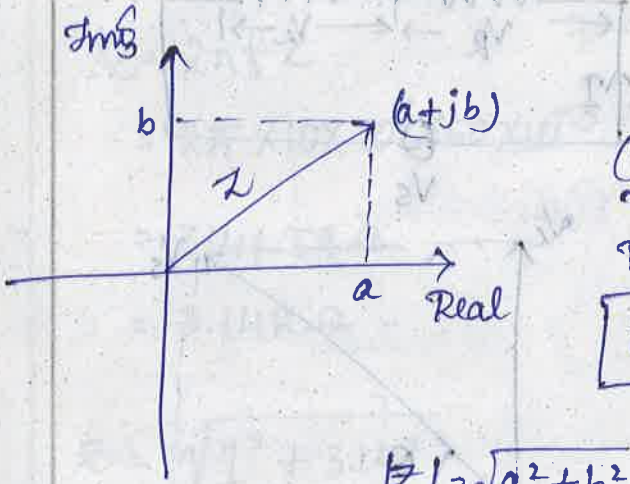 Img
b
(a+jb)
Z
a
Real
|Z| = √a²+b²